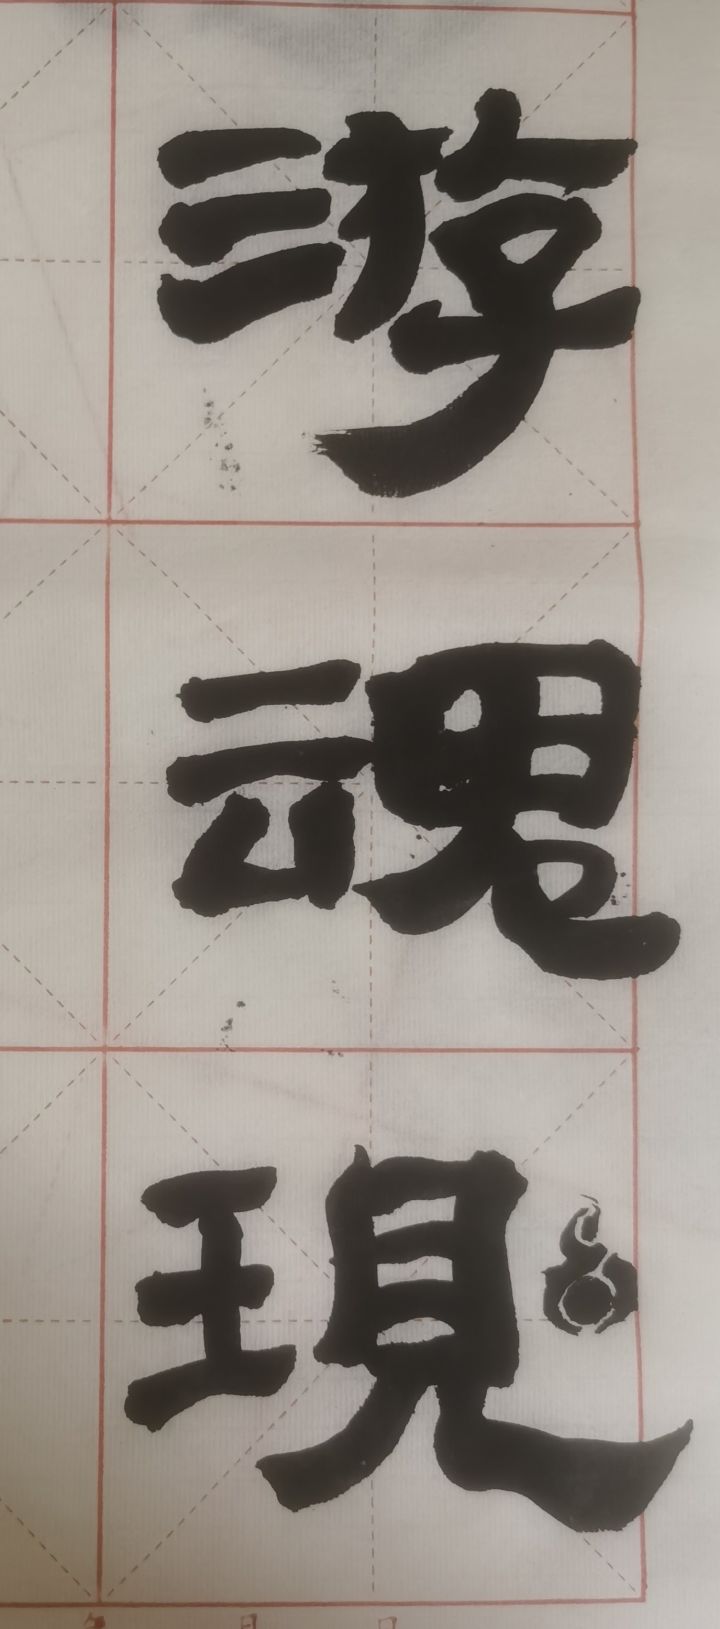 游魂現